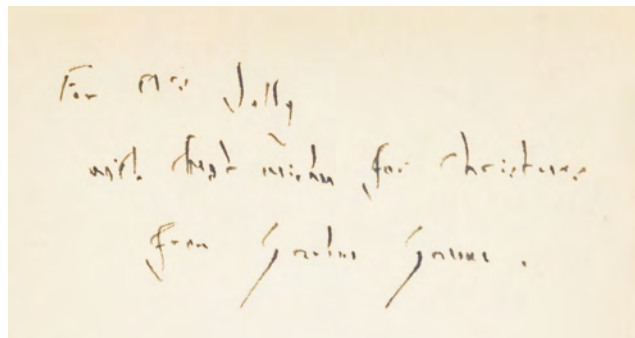 For Mrs Jolly
with best wishes for Christmas
from Graham Greene.